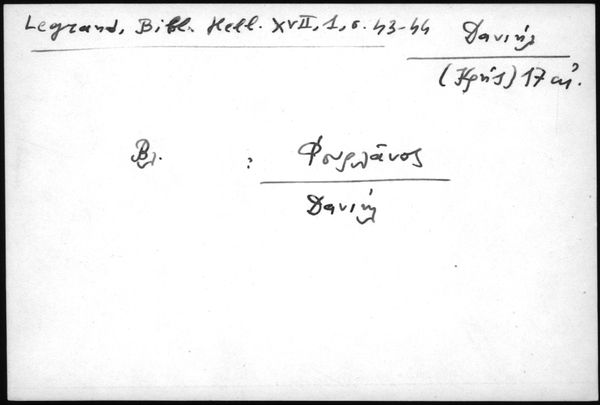 Legrand, Bibl. Hell. XVII, 1, σ. 43-44
Δανιήλ
(Κρής) 17 αἰ.
Βλ. : Φουρλᾶνος
Δανιήλ